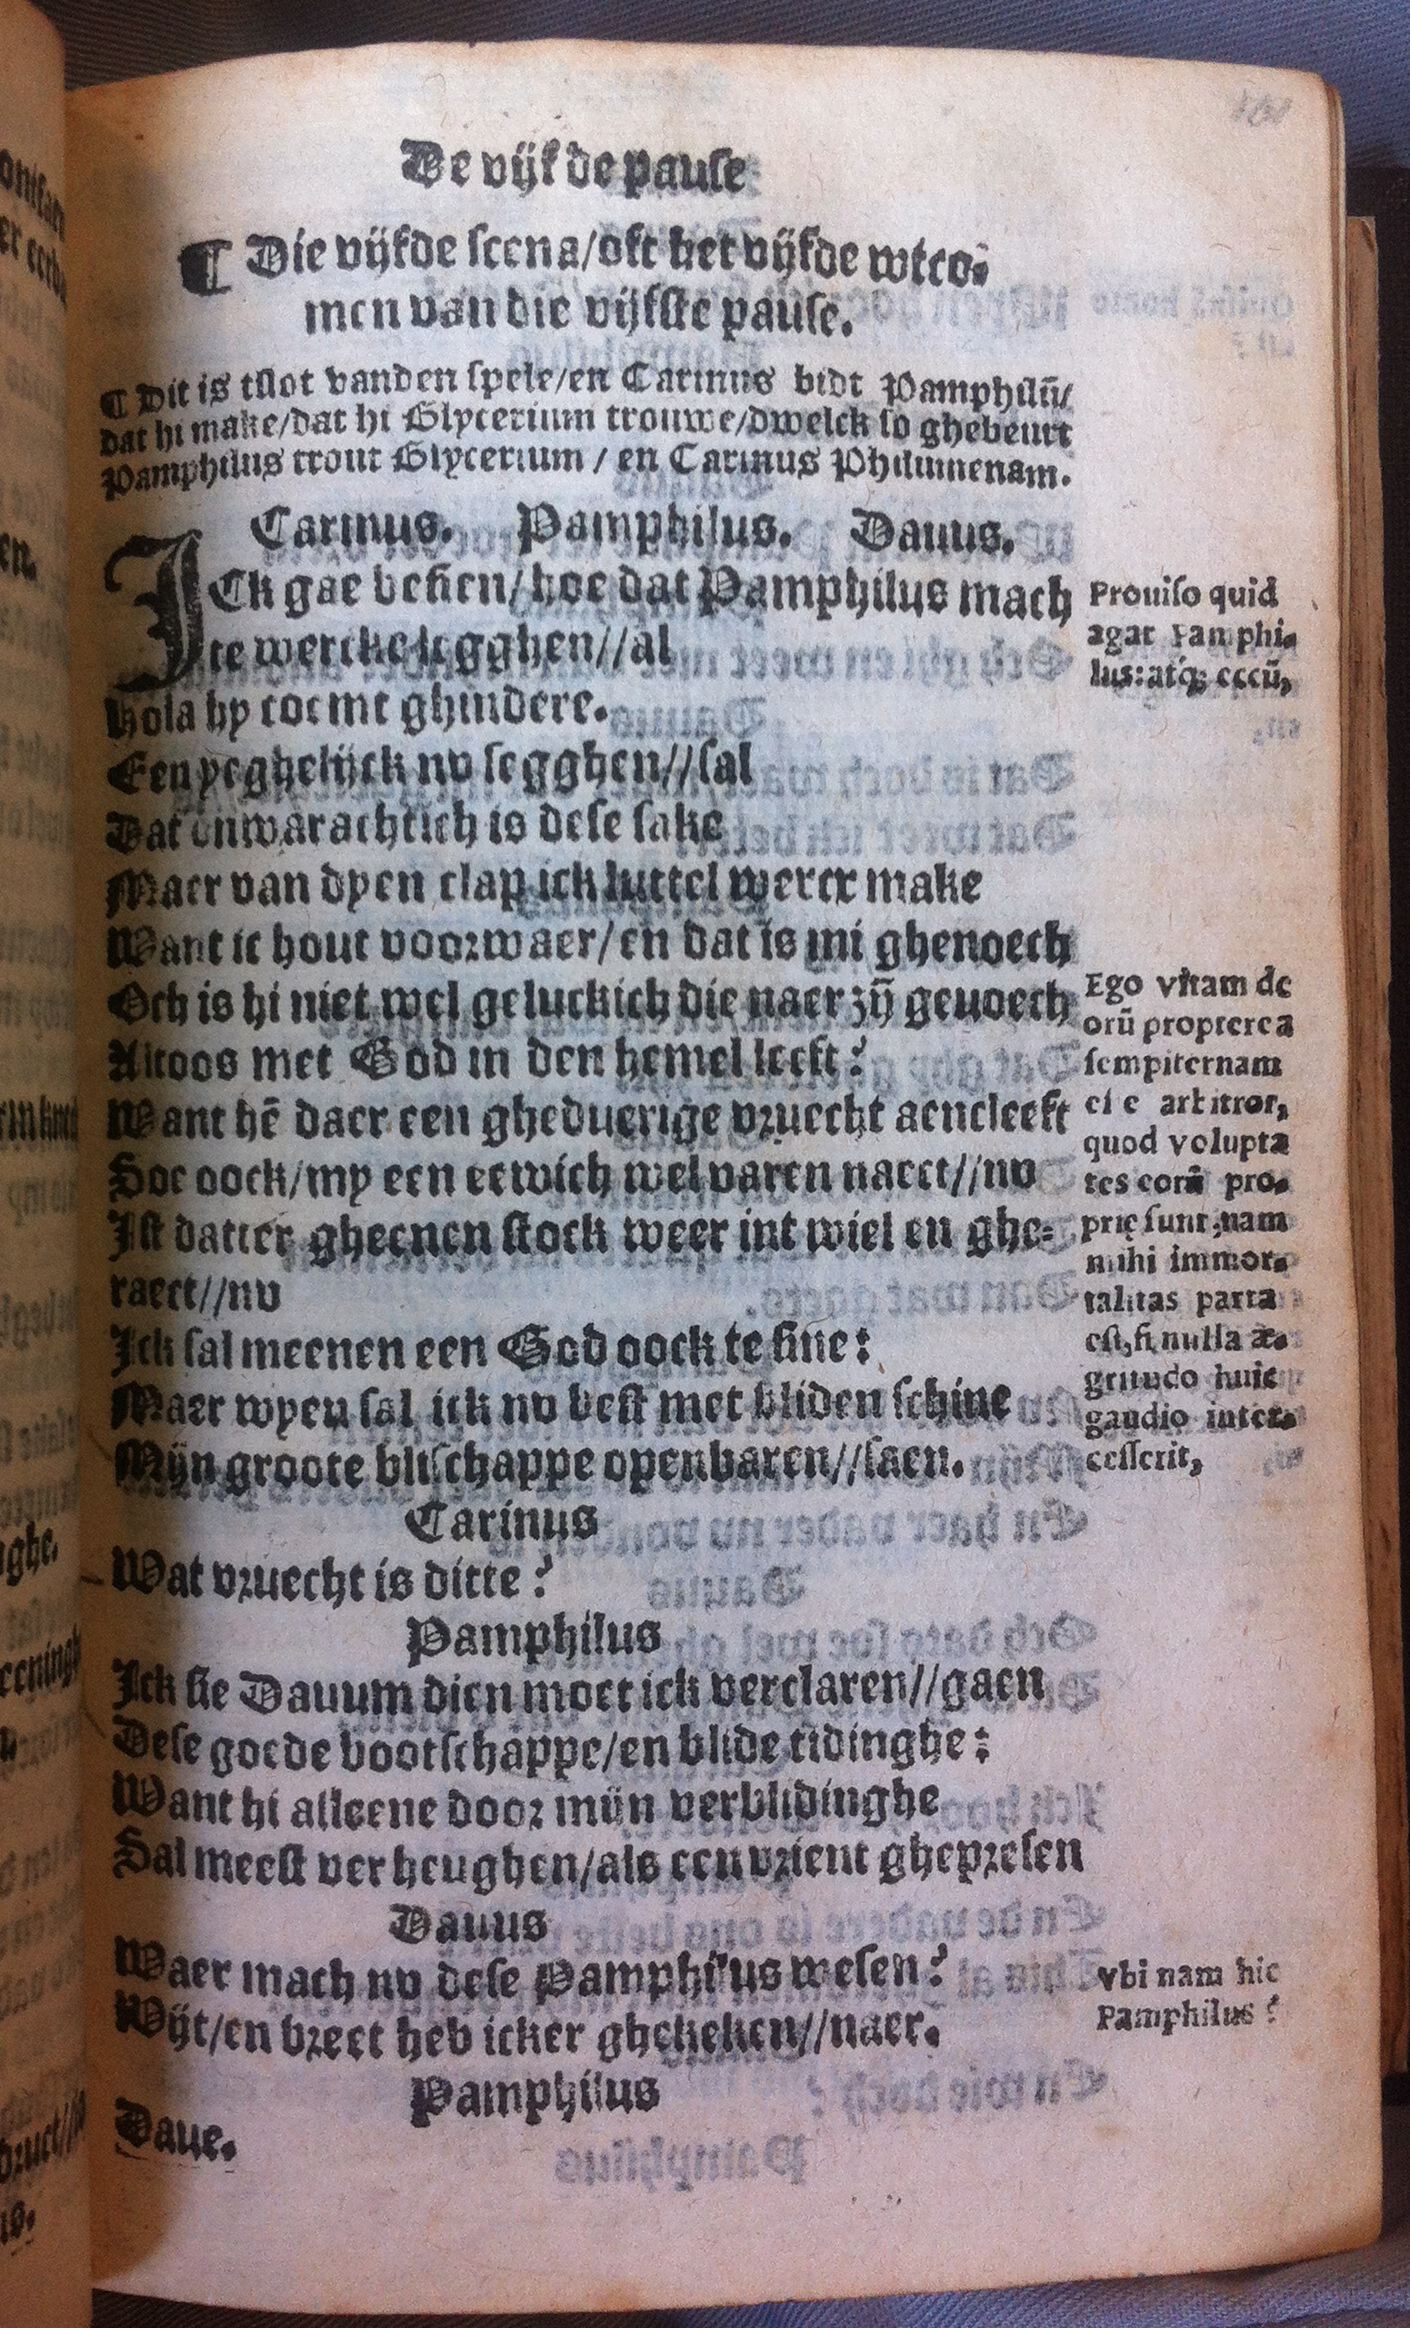 De vijfde pause
¶ Die vijfde scena/oft het vijfde wtco-
men van die vijfste pause.
¶ Dit is tslot vanden spele/en Carinus bidt Pamphilū/
dat hi make/dat hi Glycerium trouwe/dwelck so ghebeurt
Pamphilus trout Glycerium / en Carinus Philumenam.
Carinus. Pamphilus. Dauus.
ICk gae besien/hoe dat Pamphilus mach
te wercke legghen//al
Hola hy coemt ghindere.
Een yeghelijck nv segghen//sal
Dat onwarachtich is dese sake
Maer van dyen clap ick luttel wercx make
Want ic hout voorwaer/en dat is mi ghenoech
Och is hi niet wel geluckich die naer zijn geuoech
Altoos met God in den hemel leeft?
Want hē daer een ghedurige vruecht aencleeft
Soe oock/my een eewich welvaren naect//nv
Ist datter gheenen stock weer int wiel en ghe-
raect//nv
Ick sal meenen een God oock te sine:
Maer wyen sal ick nv best met bliden schine
Mijn groote blischappe openbaren//saen.
Carinus
Wat vruecht is ditte?
Pamphilus
Ick sie Dauum dien moet ick verclaren//gaen
Dese goede bootschappe/en blide tidinghe:
Want hi alleene door mijn verblidinghe
Sal meest verheughen/als een vrient ghepresen
Dauus
Waer mach nv dese Pamphilus wesen?
Pamphilus
Wijt/en breet heb icker ghekeken//naer.
Daue.
Prouiso quid
agat Pamphi-
lus: atq; eccū,
Ego vitam de
orū propterea
sempiternam
esse arbitror,
quod volupta
tes eorū pro-
prię sunt, nam
mihi immor-
talitas parta
est, si nulla æ-
gritudo huic
gaudio inter-
cesserit,
Vbi nam hic
Pamphilus?